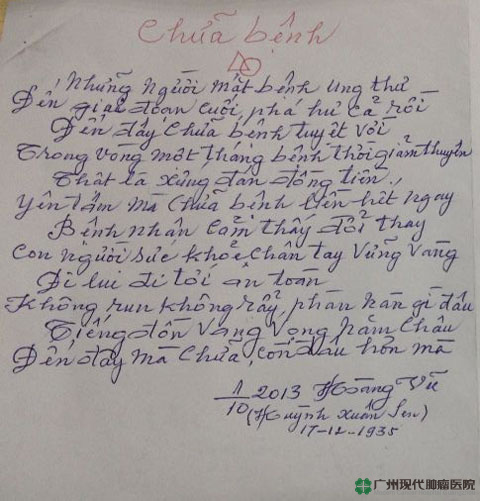 Chữa bệnh
Những người mắt bệnh ung thư
Đến giai đoạn cuối, phá hư cả rồi
Đến đây chữa bệnh tuyệt vời
Trong vòng một tháng bệnh thời giảm thuyên
Thật là xứng đán đồng tiền!
Yên tâm mà chữa bệnh liền hết ngay
Bệnh nhân cảm thấy đổi thay
Con người sức khỏe chân tay vững vàng
Đi lui đi tới an toàn
Không run không rẩy, phàn nàn gì đâu
Tiếng đồn vang vọng năm châu
Đến đây mà chữa, còn đâu hơn mà
1/10 2013 Hoàng Vũ
(Huỳnh Xuân Sen)
17-12-1935
广州现代肿瘤医院